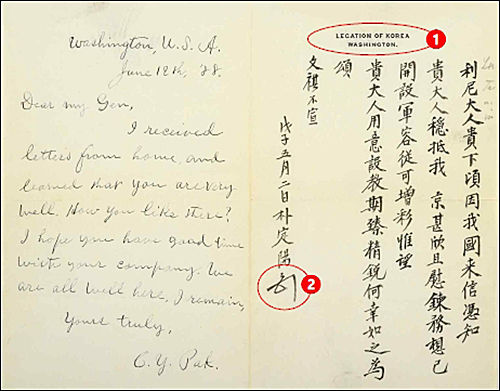 Washington, U.S.A.
June 12th, '88.
Dear my Gen,
I received
letters from home, and
learned that you are very
well. How you like there?
I hope you have good time
with your company. We
are all well here, I remain,
Yours truly,
C. Y. Pak.
LEGATION OF KOREA
WASHINGTON.
1
利尼大人貴下頃因我國來信憑知
貴大人穩抵我 京甚欣且慰鍊務想已
開設軍容從可增彩惟望
貴大人用意設教期臻精銳何幸如之爲
頌
文祺不宣
戊子五月二日朴定陽
2